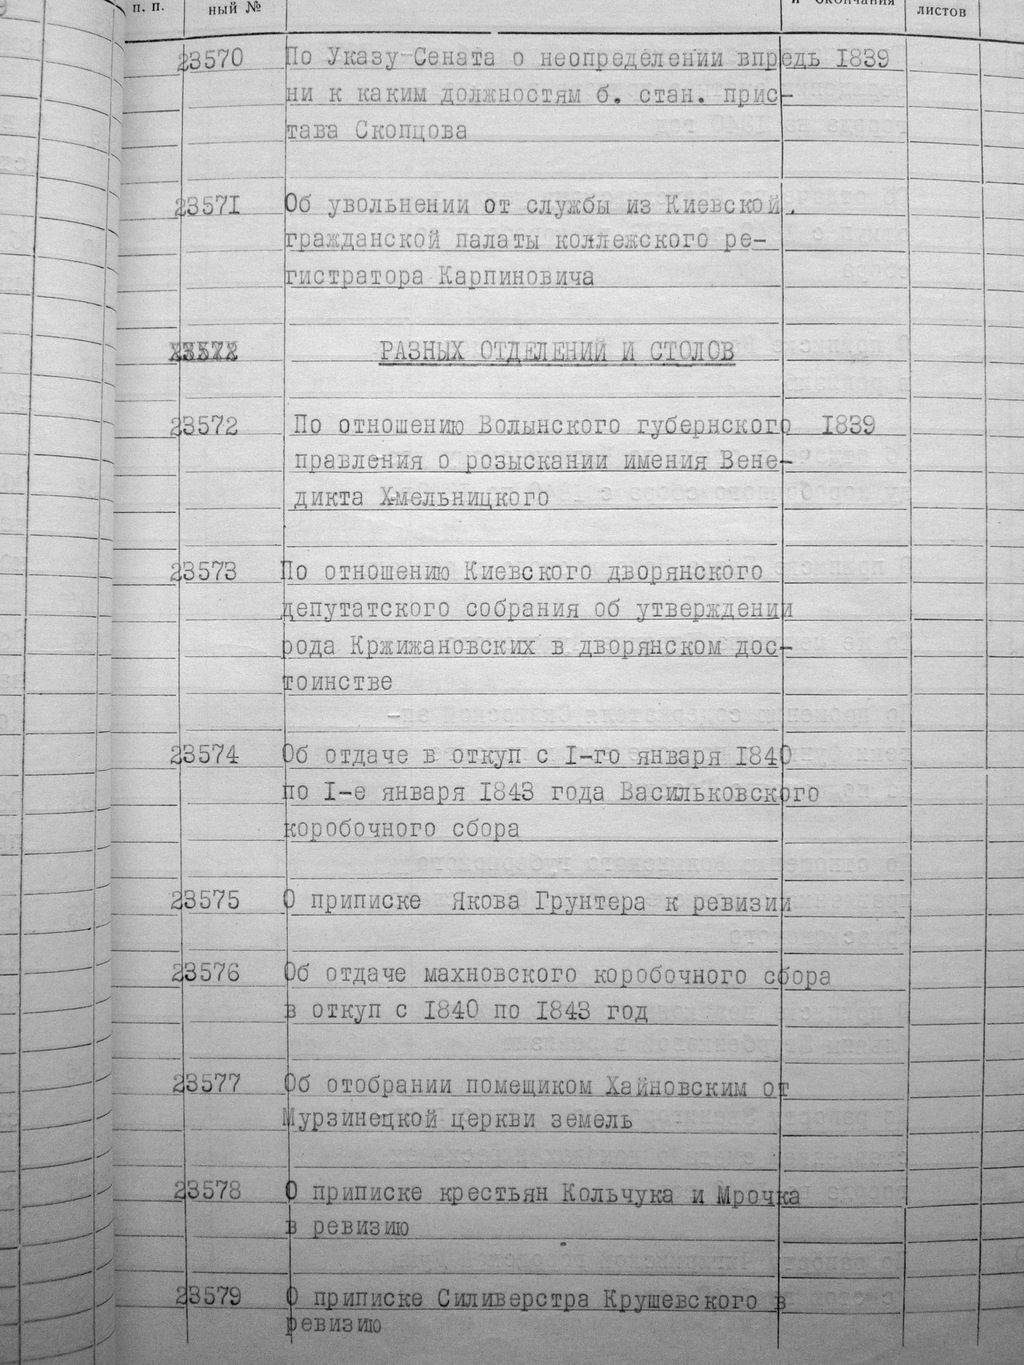 п. п. ный № и окончания листов
23570 По Указу Сената о неопределении впредь 1839
ни к каким должностям б. стан. прис-
тава Скопцова
23571 Об увольнении от службы из Киевской
гражданской палаты коллежского ре-
гистратора Карпиновича
РАЗНЫХ ОТДЕЛЕНИЙ И СТОЛОВ
23572 По отношению Волынского губернского 1839
правления о розыскании имения Вене-
дикта Хмельницкого
23573 По отношению Киевского дворянского
депутатского собрания об утверждении
рода Кржижановских в дворянском дос-
тоинстве
23574 Об отдаче в откуп с I-го января 1840
по I-е января 1843 года Васильковского
коробочного сбора
23575 О приписке Якова Грунтера к ревизии
23576 Об отдаче махновского коробочного сбора
в откуп с 1840 по 1843 год
23577 Об отобрании помещиком Хайновским от
Мурзинецкой церкви земель
23578 О приписке крестьян Кольчука и Мрочка
в ревизию
23579 О приписке Силиверстра Крушевского в
ревизию